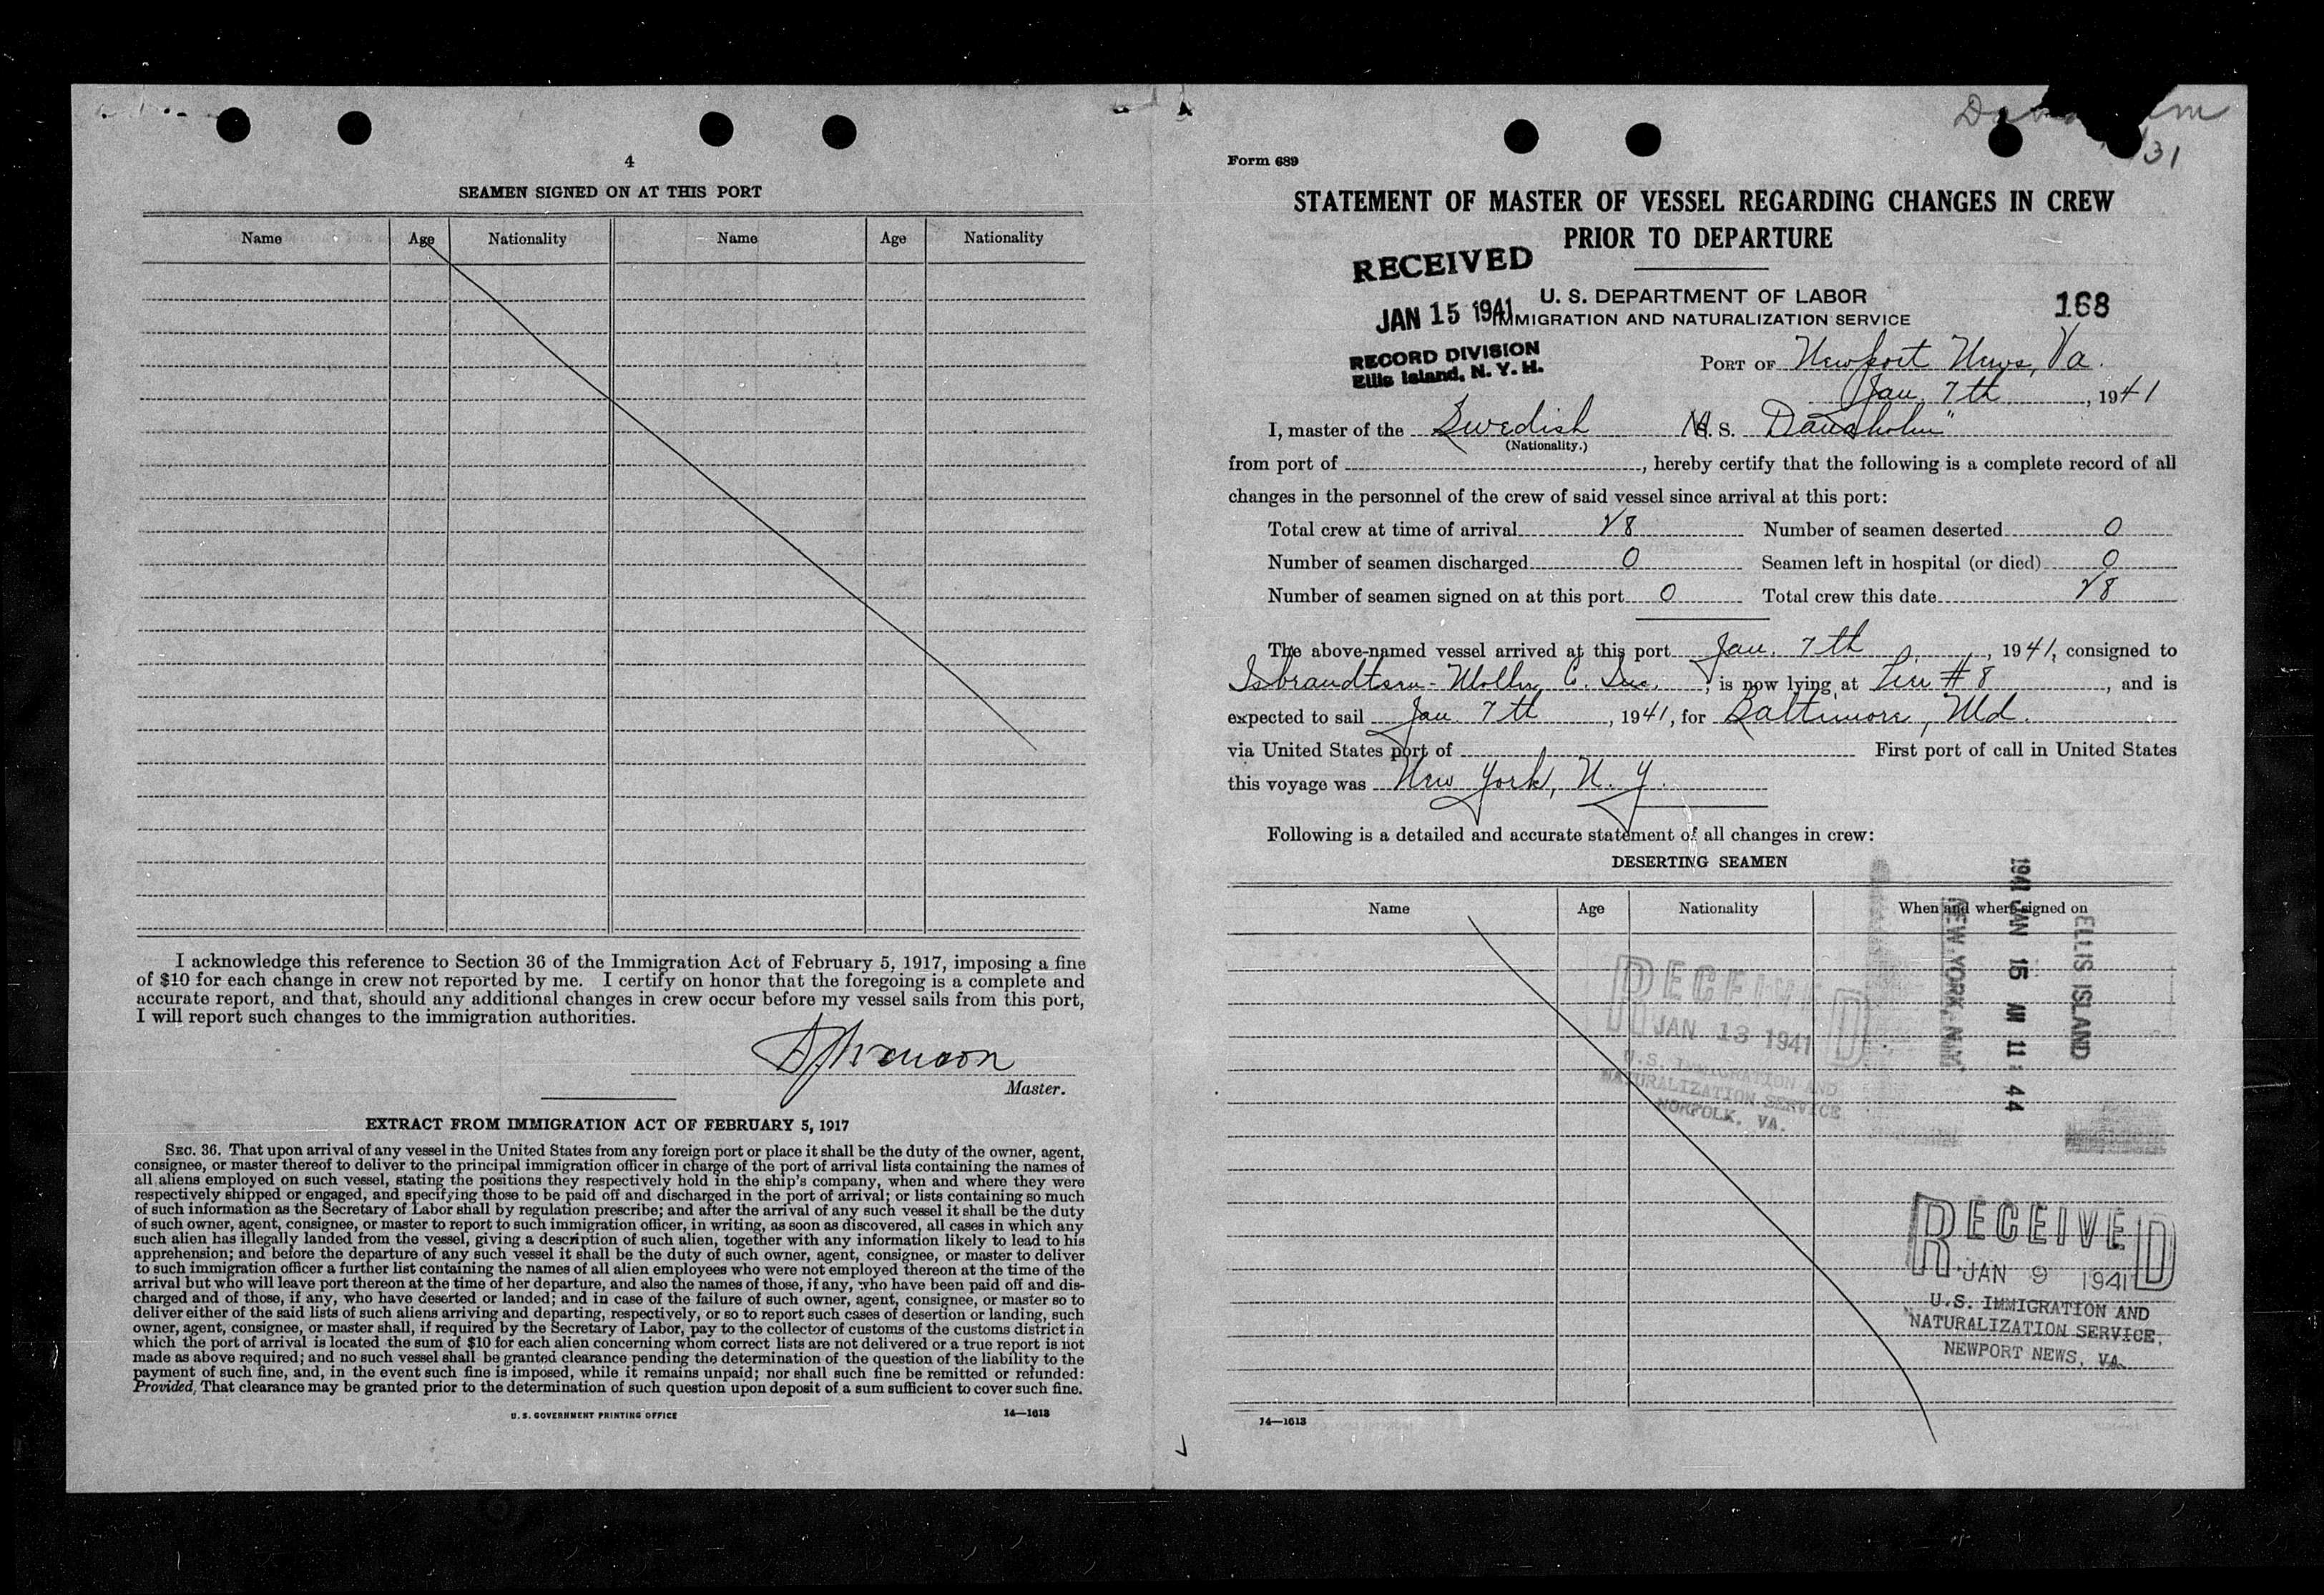 4
SEAMEN SIGNED ON AT THIS PORT
Name Age Nationality Name Age Nationality
I acknowledge this reference to Section 36 of the Immigration Act of February 5, 1917, imposing a fine
of $10 for each change in crew not reported by me. I certify on honor that the foregoing is a complete and
accurate report, and that, should any additional changes in crew occur before my vessel sails from this port,
I will report such changes to the immigration authorities.
Master.
EXTRACT FROM IMMIGRATION ACT OF FEBRUARY 5, 1917
SEC. 36. That upon arrival of any vessel in the United States from any foreign port or place it shall be the duty of the owner, agent,
consignee, or master thereof to deliver to the principal immigration officer in charge of the port of arrival lists containing the names of
all aliens employed on such vessel, stating the positions they respectively hold in the ship's company, when and where they were
respectively shipped or engaged, and specifying those to be paid off and discharged in the port of arrival; or lists containing so much
of such information as the Secretary of Labor shall by regulation prescribe; and after the arrival of any such vessel it shall be the duty
of such owner, agent, consignee, or master to report to such immigration officer, in writing, as soon as discovered, all cases in which any
such alien has illegally landed from the vessel, giving a description of such alien, together with any information likely to lead to his
apprehension; and before the departure of any such vessel it shall be the duty of such owner, agent, consignee, or master to deliver
to such immigration officer a further list containing the names of all alien employees who were not employed thereon at the time of the
arrival but who will leave port thereon at the time of her departure, and also the names of those, if any, who have been paid off and dis-
charged and of those, if any, who have deserted or landed; and in case of the failure of such owner, agent, consignee, or master so to
deliver either of the said lists of such aliens arriving and departing, respectively, or so to report such cases of desertion or landing, such
owner, agent, consignee, or master shall, if required by the Secretary of Labor, pay to the collector of customs of the customs district in
which the port of arrival is located the sum of $10 for each alien concerning whom correct lists are not delivered or a true report is not
made as above required; and no such vessel shall be granted clearance pending the determination of the question of the liability to the
payment of such fine, and, in the event such fine is imposed, while it remains unpaid; nor shall such fine be remitted or refunded:
Provided, That clearance may be granted prior to the determination of such question upon deposit of a sum sufficient to cover such fine.
U. S. GOVERNMENT PRINTING OFFICE 14—1613
31
Form 689
STATEMENT OF MASTER OF VESSEL REGARDING CHANGES IN CREW
PRIOR TO DEPARTURE
RECEIVED
JAN 15 1941
RECORD DIVISION
Ellis Island, N. Y. H.
U. S. DEPARTMENT OF LABOR
IMMIGRATION AND NATURALIZATION SERVICE
168
PORT OF Newport News, Va.
Jan. 7th, 1941
I, master of the Swedish M. S. Danaholm"
(Nationality.)
from port of , hereby certify that the following is a complete record of all
changes in the personnel of the crew of said vessel since arrival at this port:
Total crew at time of arrival 28 Number of seamen deserted 0
Number of seamen discharged 0 Seamen left in hospital (or died) 0
Number of seamen signed on at this port 0 Total crew this date 28
The above-named vessel arrived at this port Jan. 7th, 1941, consigned to
Isbrandtsen-Moller C. Inc., is now lying at Pier #8, and is
expected to sail Jan. 7th, 1941, for Baltimore, Md.
via United States port of First port of call in United States
this voyage was New York, N. Y.
Following is a detailed and accurate statement of all changes in crew:
DESERTING SEAMEN
Name Age Nationality When and where signed on
RECEIVED
JAN 13 1941
U.S. IMMIGRATION AND
NATURALIZATION SERVICE
NORFOLK, VA.
NEW YORK, N.Y.
1941 JAN 15 AM 11:44
ELLIS ISLAND
RECEIVED
JAN 9 1941
U.S. IMMIGRATION AND
NATURALIZATION SERVICE,
NEWPORT NEWS, VA.
14—1613